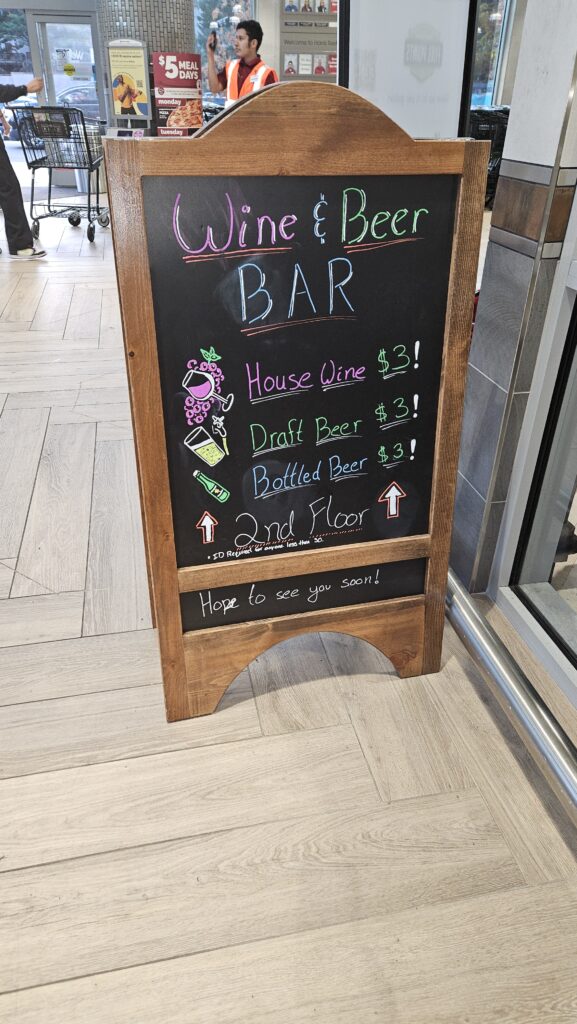 $5 MEAL
DAYS
monday
tuesday
Wine & Beer
BAR
House Wine $3!
Draft Beer $3!
Bottled Beer $3!
2nd Floor
* ID Required for anyone less than 30.
Hope to see you soon!